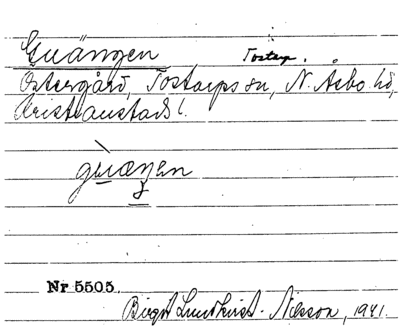 Guängen Tostarp.
Östergård, Tostarps sn, N. Åsbo hd,
Kristianstads l.
gùæŋen
Nr 5505
Birgit Lundkvist-Nilsson, 1941.